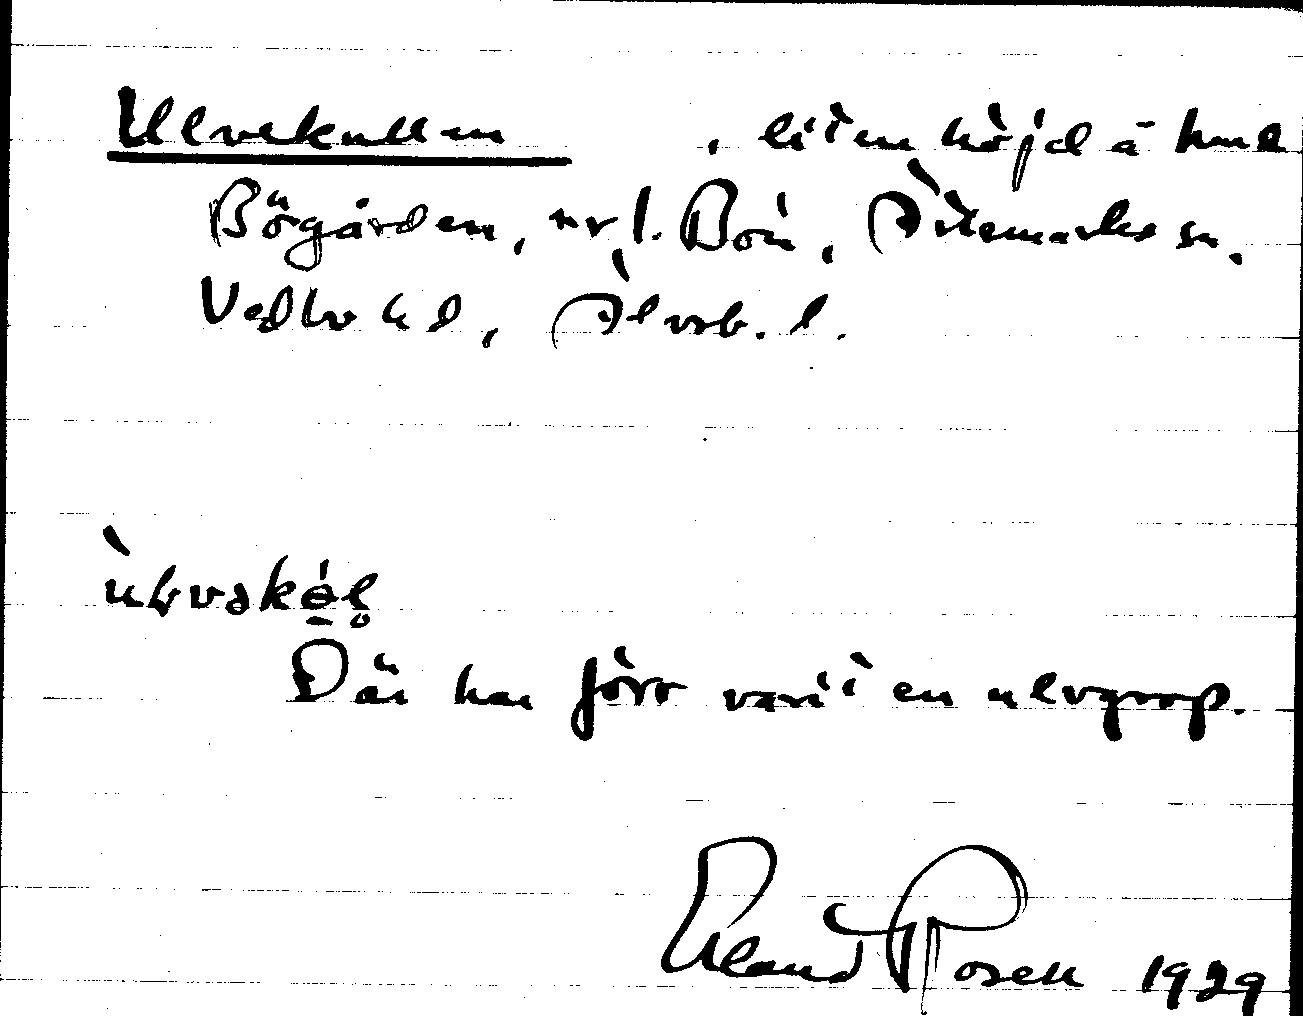 Ulvekullen , liten höjd å hmd
Bögården, nr 1. Bön, Ättemarks sn.
Vedbo hd, Älvsb. l.
Där har förr varit en ulvgrop.
Eland Rosell 1929